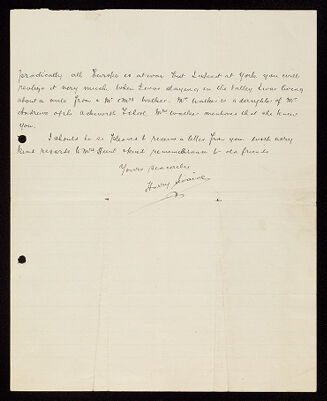 practically all Europe is at war but I expect at York you will
realize it very much. When I was staying in the valley I was living
about a mile from a Mr & Mrs Walker. Mrs Walker is a daughter of Mr
Andrews of the Ackworth School. Mrs Walker mentions that she knew
you.
I should be so pleased to receive a letter from you. With very
kind regards to Mrs Hunt & kind remembrance to old friends
Yours sincerely
Harry